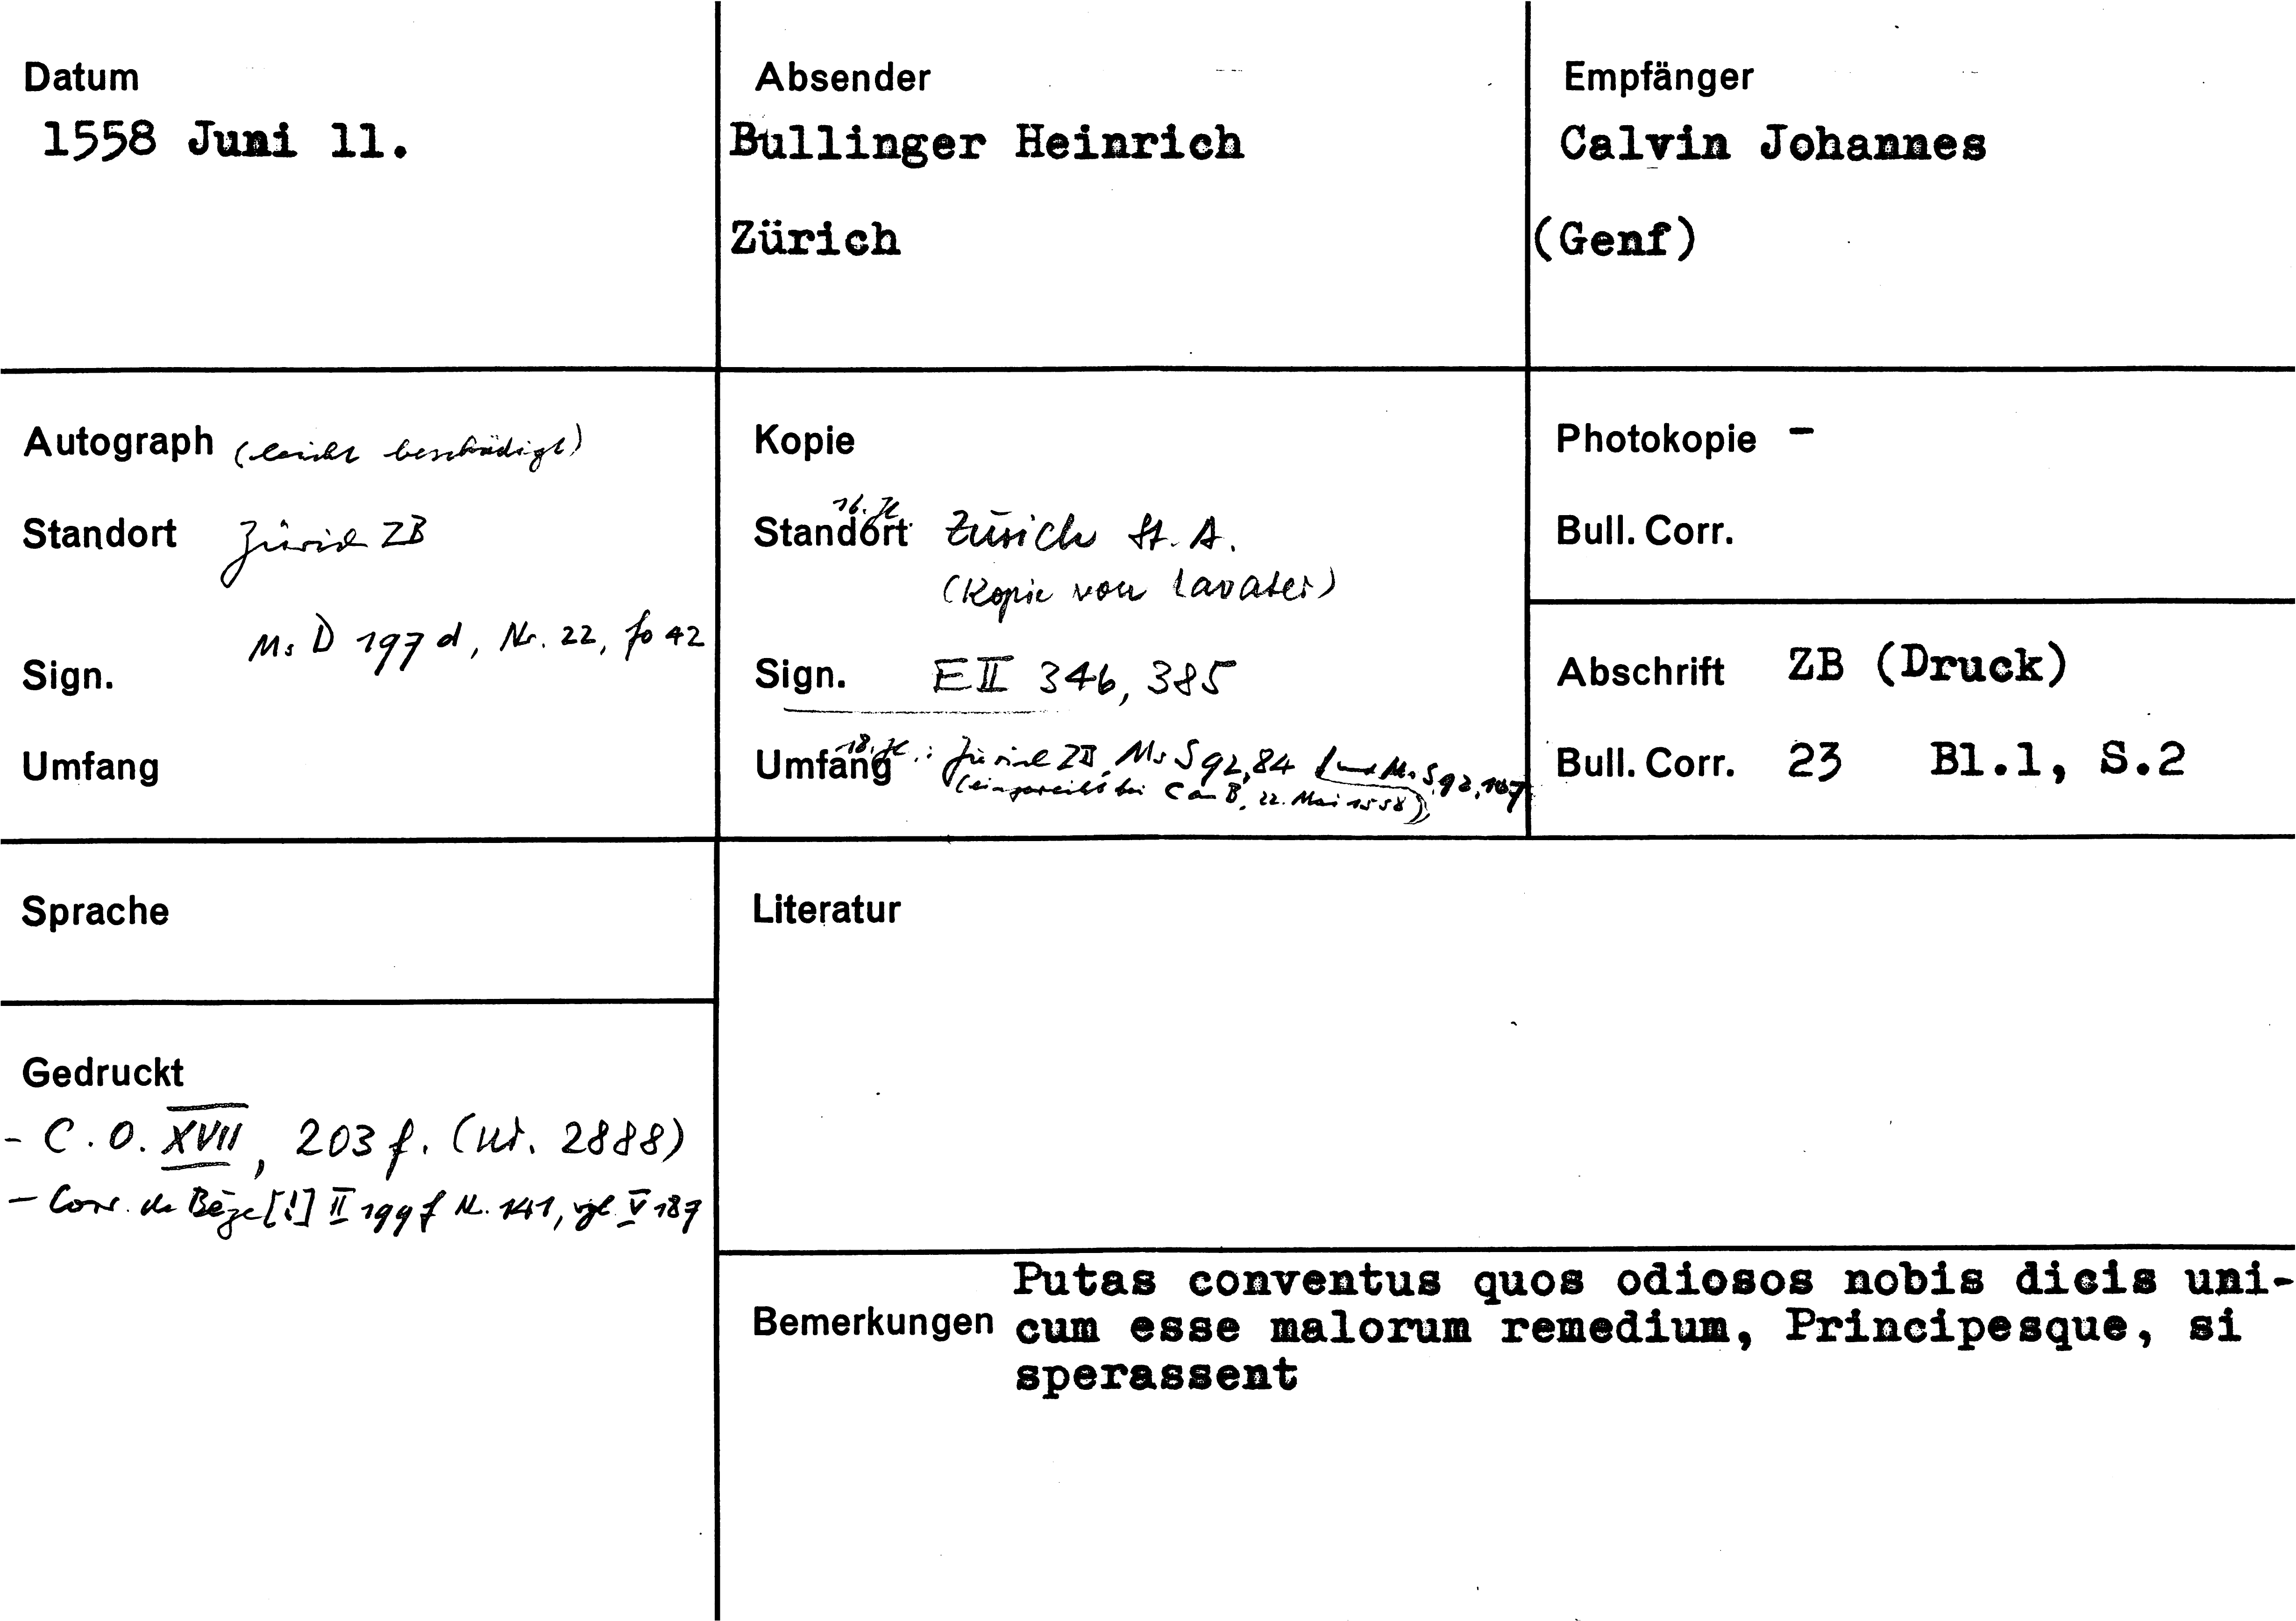 Datum
1558 Juni 11.
Absender
Bullinger Heinrich
Zürich
Empfänger
Calvin Johannes
(Genf)
Autograph (leicht beschädigt)
Standort Zürich ZB
Sign. Ms D 197 d, Nr. 22, fo 42
Umfang
Kopie
16. Jh.
Standort Zürich St. A.
(Kopie von Lavater)
Sign. E II 346, 385
Umfang 18. Jh.: Zürich ZB, Ms S 92, 84 (und Ms S 92, 167
(eingereiht bei C an B, 22. Mai 1558))
Photokopie -
Bull. Corr.
Abschrift ZB (Druck)
Bull. Corr. 23 Bl.1, S.2
Sprache
Gedruckt
- C. O. XVII, 203 f. (Nr. 2888)
- Corr. de Bèze [!] II 199 f Nr. 141, vgl. V 187
Literatur
Bemerkungen
Putas conventus quos odiosos nobis dicis uni-
cum esse malorum remedium, Principesque, si
sperassent